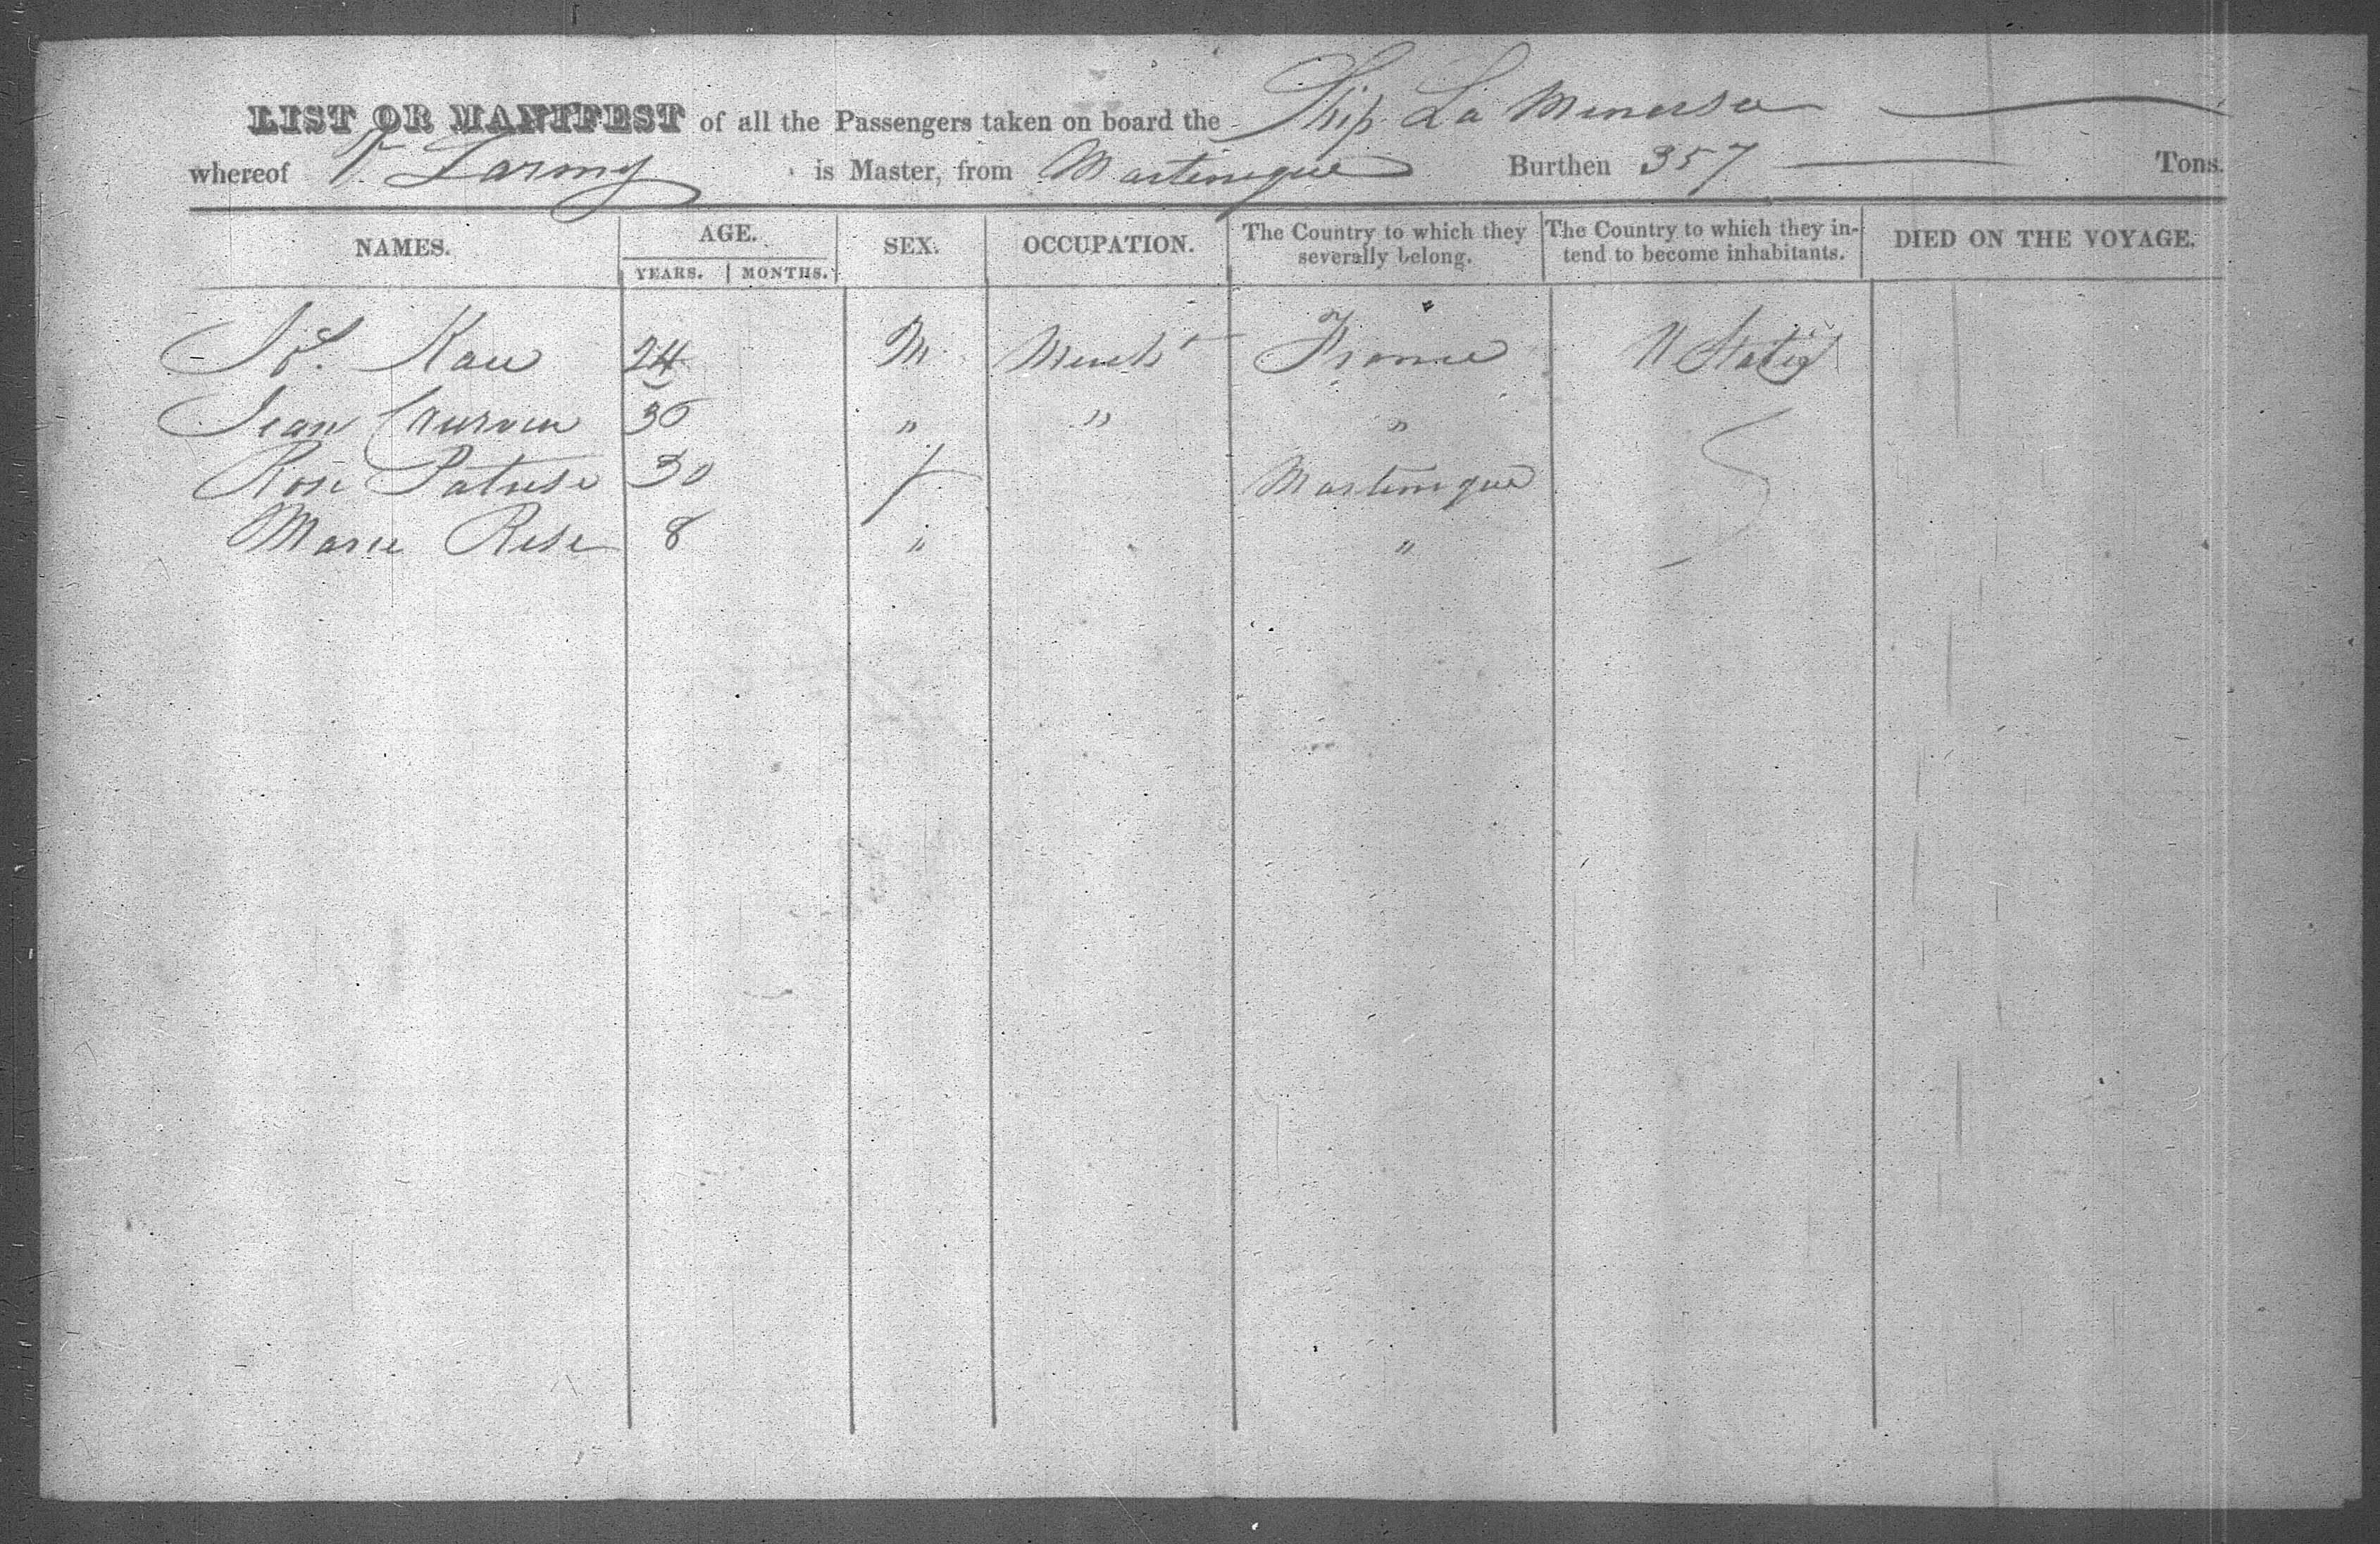 LIST OR MANIFEST of all the Passengers taken on board the Ship La Minerva
whereof is Master, from Martinique Burthen 357 Tons.
NAMES. AGE. YEARS. MONTHS. SEX. OCCUPATION. The Country to which they severally belong. The Country to which they intend to become inhabitants. DIED ON THE VOYAGE.
24 M Mercht France U States
Jean 30 " " "
Rose 30 f Martinique
Marie Rose 8 " "